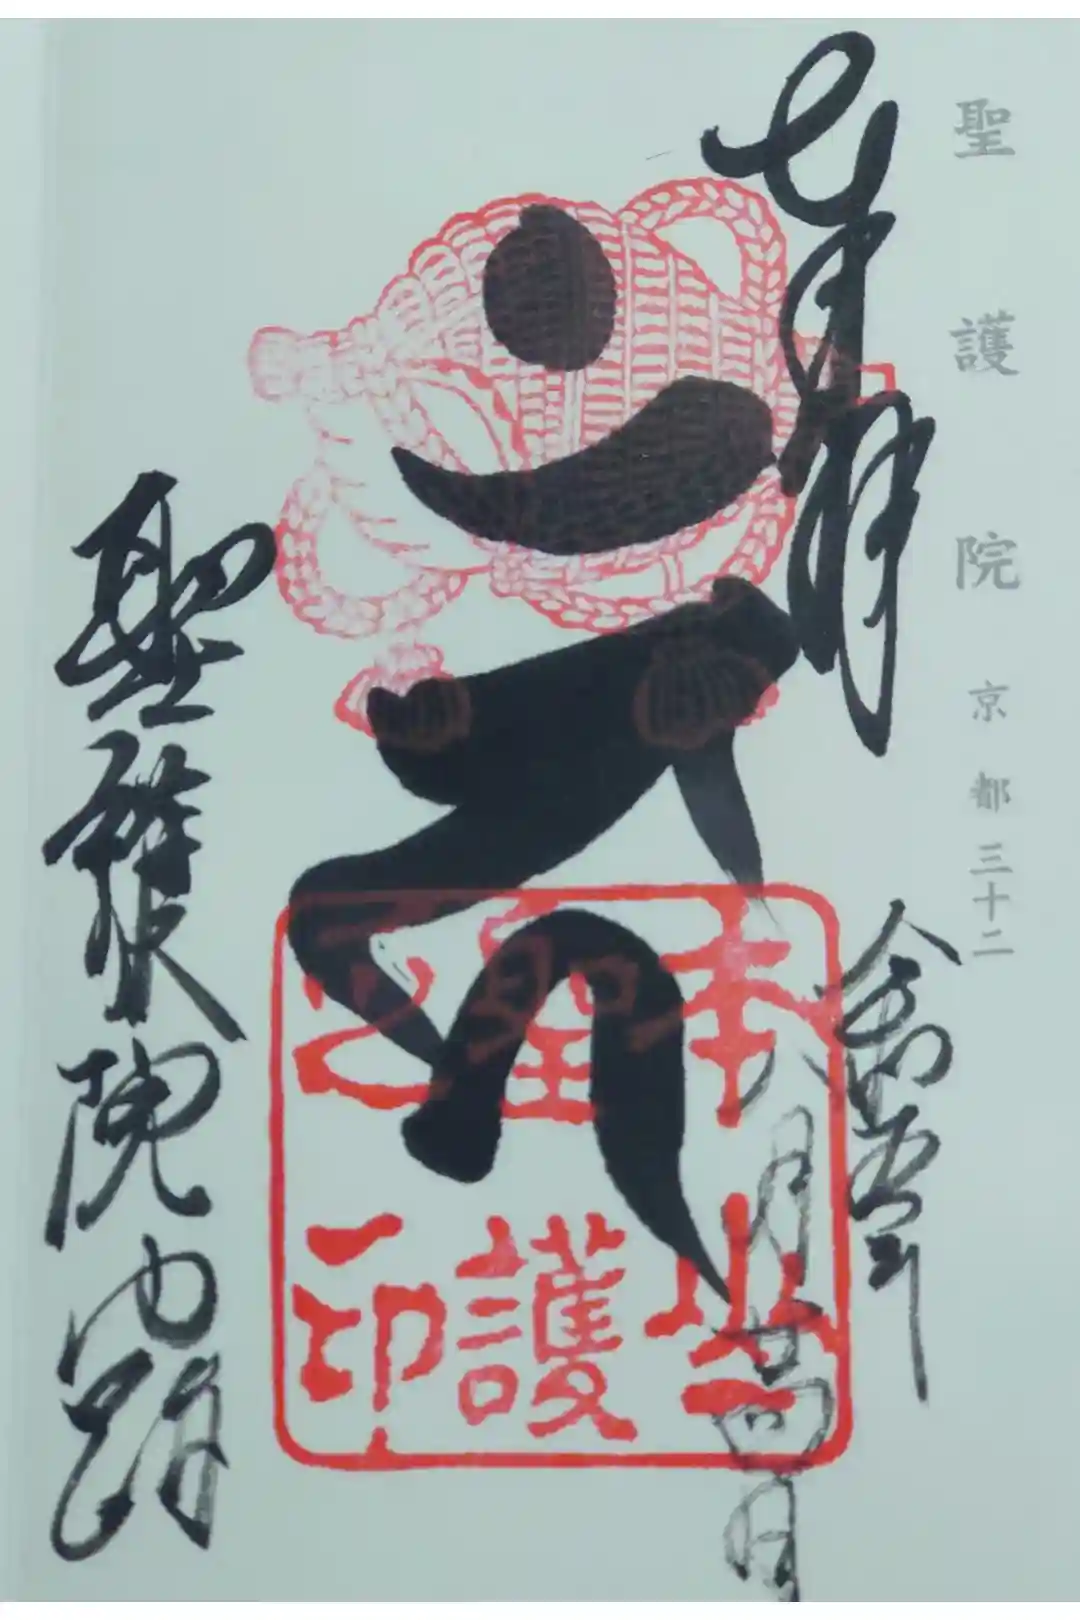 聖護院 京都三十二
奉拝
令和五年
八月廿四日
本山
聖護
之印
聖護院門跡